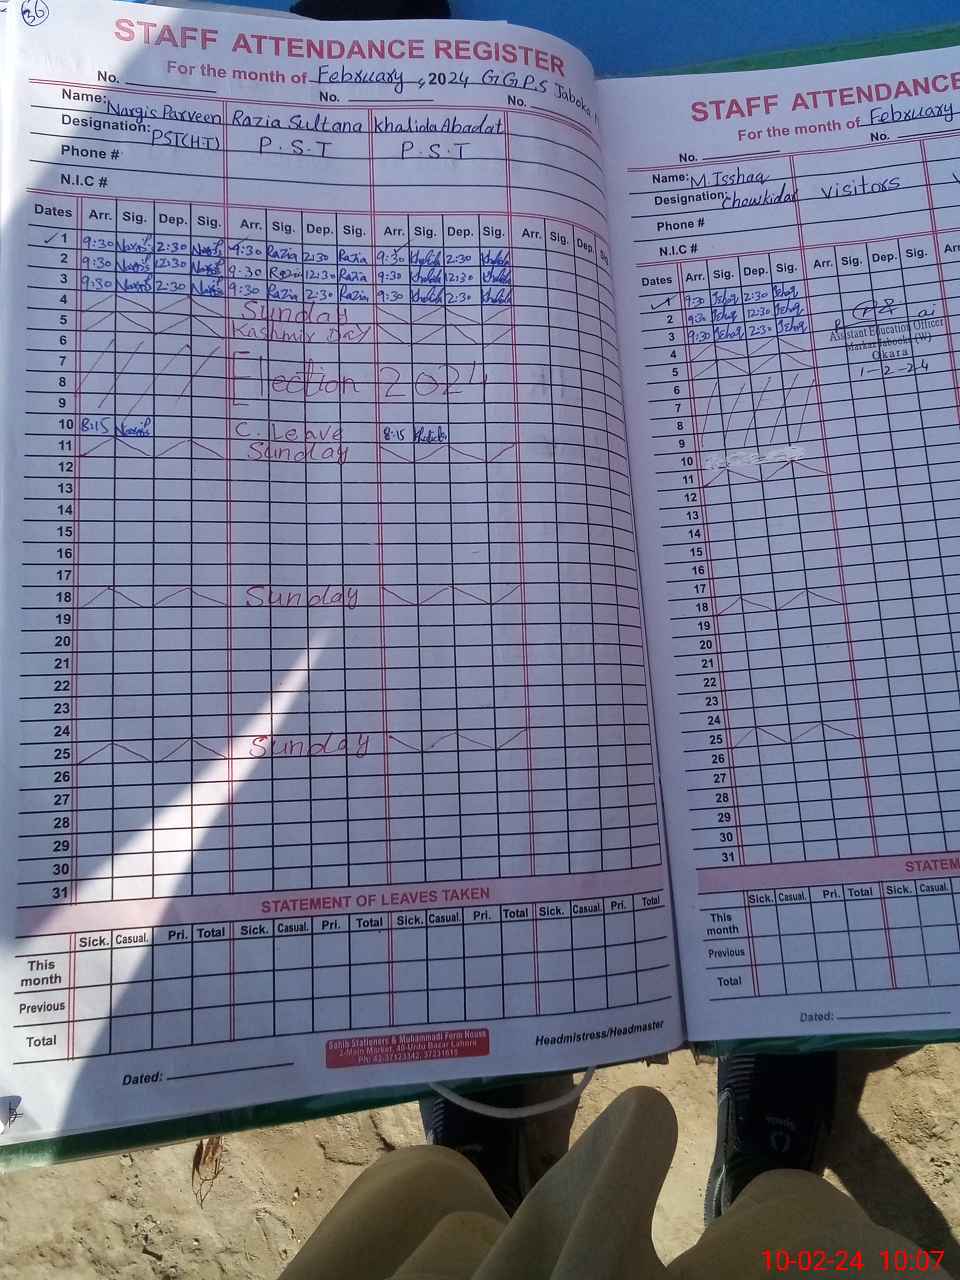 36
STAFF ATTENDANCE REGISTER
For the month of February, 2024 G G P S Jaboka
No. No. No.
Name: Nargis Parveen Razia Sultana Khalida Abadat
Designation: PST(H.T) P.S.T P.S.T
Phone #
N.I.C #
Dates Arr. Sig. Dep. Sig. Arr. Sig. Dep. Sig. Arr. Sig. Dep. Sig. Arr. Sig. Dep. Sig.
1 9:30 Nargis P 2:30 Nargis P 9:30 Razia 2:30 Razia 9:30 Khalida 2:30 Khalida
2 9:30 Nargis 12:30 Nargis 9:30 Razia 12:30 Razia 9:30 Khalida 12:30 Khalida
3 9:30 Nargis 2:30 Nargis 9:30 Razia 2:30 Razia 9:30 Khalida 2:30 Khalida
4 Sunday
5 Kashmir Day
6
7
8 Election 2024
9
10 8:15 Nargis P C. Leave 8:15 Khalida
11 Sunday
12
13
14
15
16
17
18 Sunday
19
20
21
22
23
24
25 Sunday
26
27
28
29
30
31
STATEMENT OF LEAVES TAKEN
Sick. Casual. Pri. Total Sick. Casual. Pri. Total Sick. Casual. Pri. Total Sick. Casual. Pri. Total
This month
Previous
Total
Sahib Stationers & Muhammadi Form House
2-Main Market, 40-Urdu Bazar Lahore
Ph: 42-37123342, 37231615
Headmistress/Headmaster
Dated:
STAFF ATTENDANCE
For the month of February
No. No.
Name: M. Isshaq
Designation: Chowkidar visitors
Phone #
N.I.C #
Dates Arr. Sig. Dep. Sig. Arr. Sig. Dep. Sig.
1 9:30 Ishaq 2:30 Ishaq
2 9:30 Ishaq 12:30 Ishaq
3 9:30 Ishaq 2:30 Ishaq
Assistant Education Officer
Markaz Jaboka (W)
Okara
1-2-24
4
5
6
7
8
9
10
11
12
13
14
15
16
17
18
19
20
21
22
23
24
25
26
27
28
29
30
31
STATEM
Sick. Casual. Pri. Total Sick. Casual.
This month
Previous
Total
Dated:
10-02-24 10:07